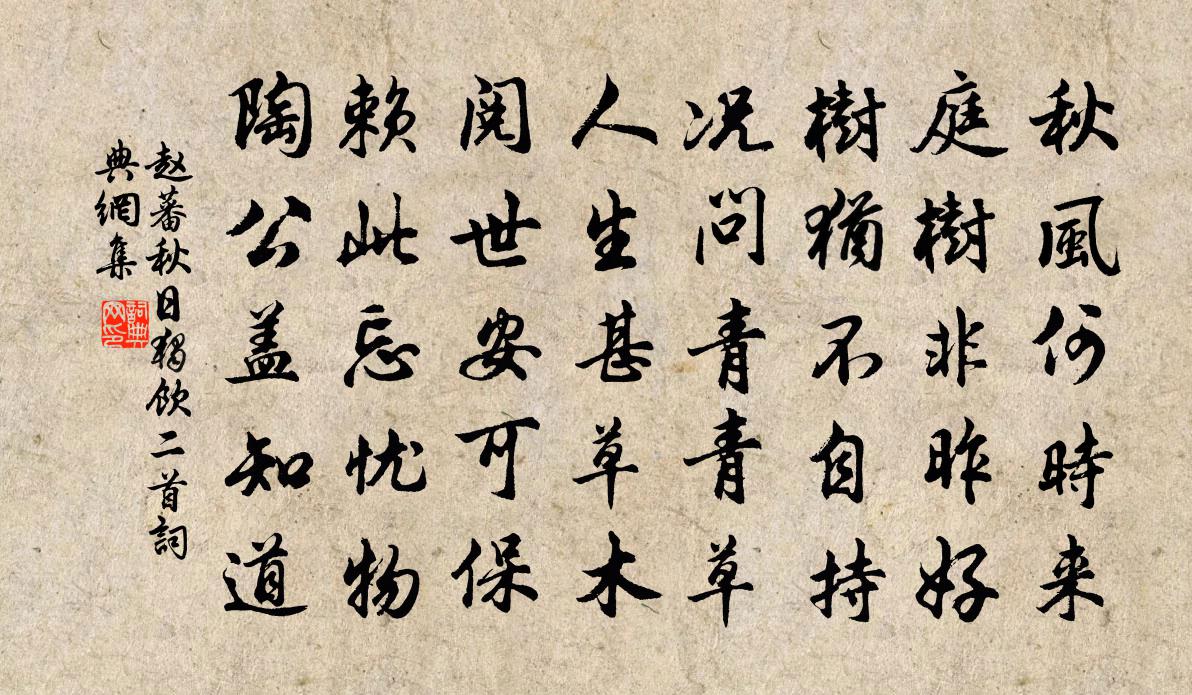 秋風何時来
庭樹非昨好
樹猶不自持
况問青青草
人生甚草木
閱世安可保
賴此忘忧物
陶公盖知道
赵蕃秋日獨飲二首詞
典網集
詞典
网印